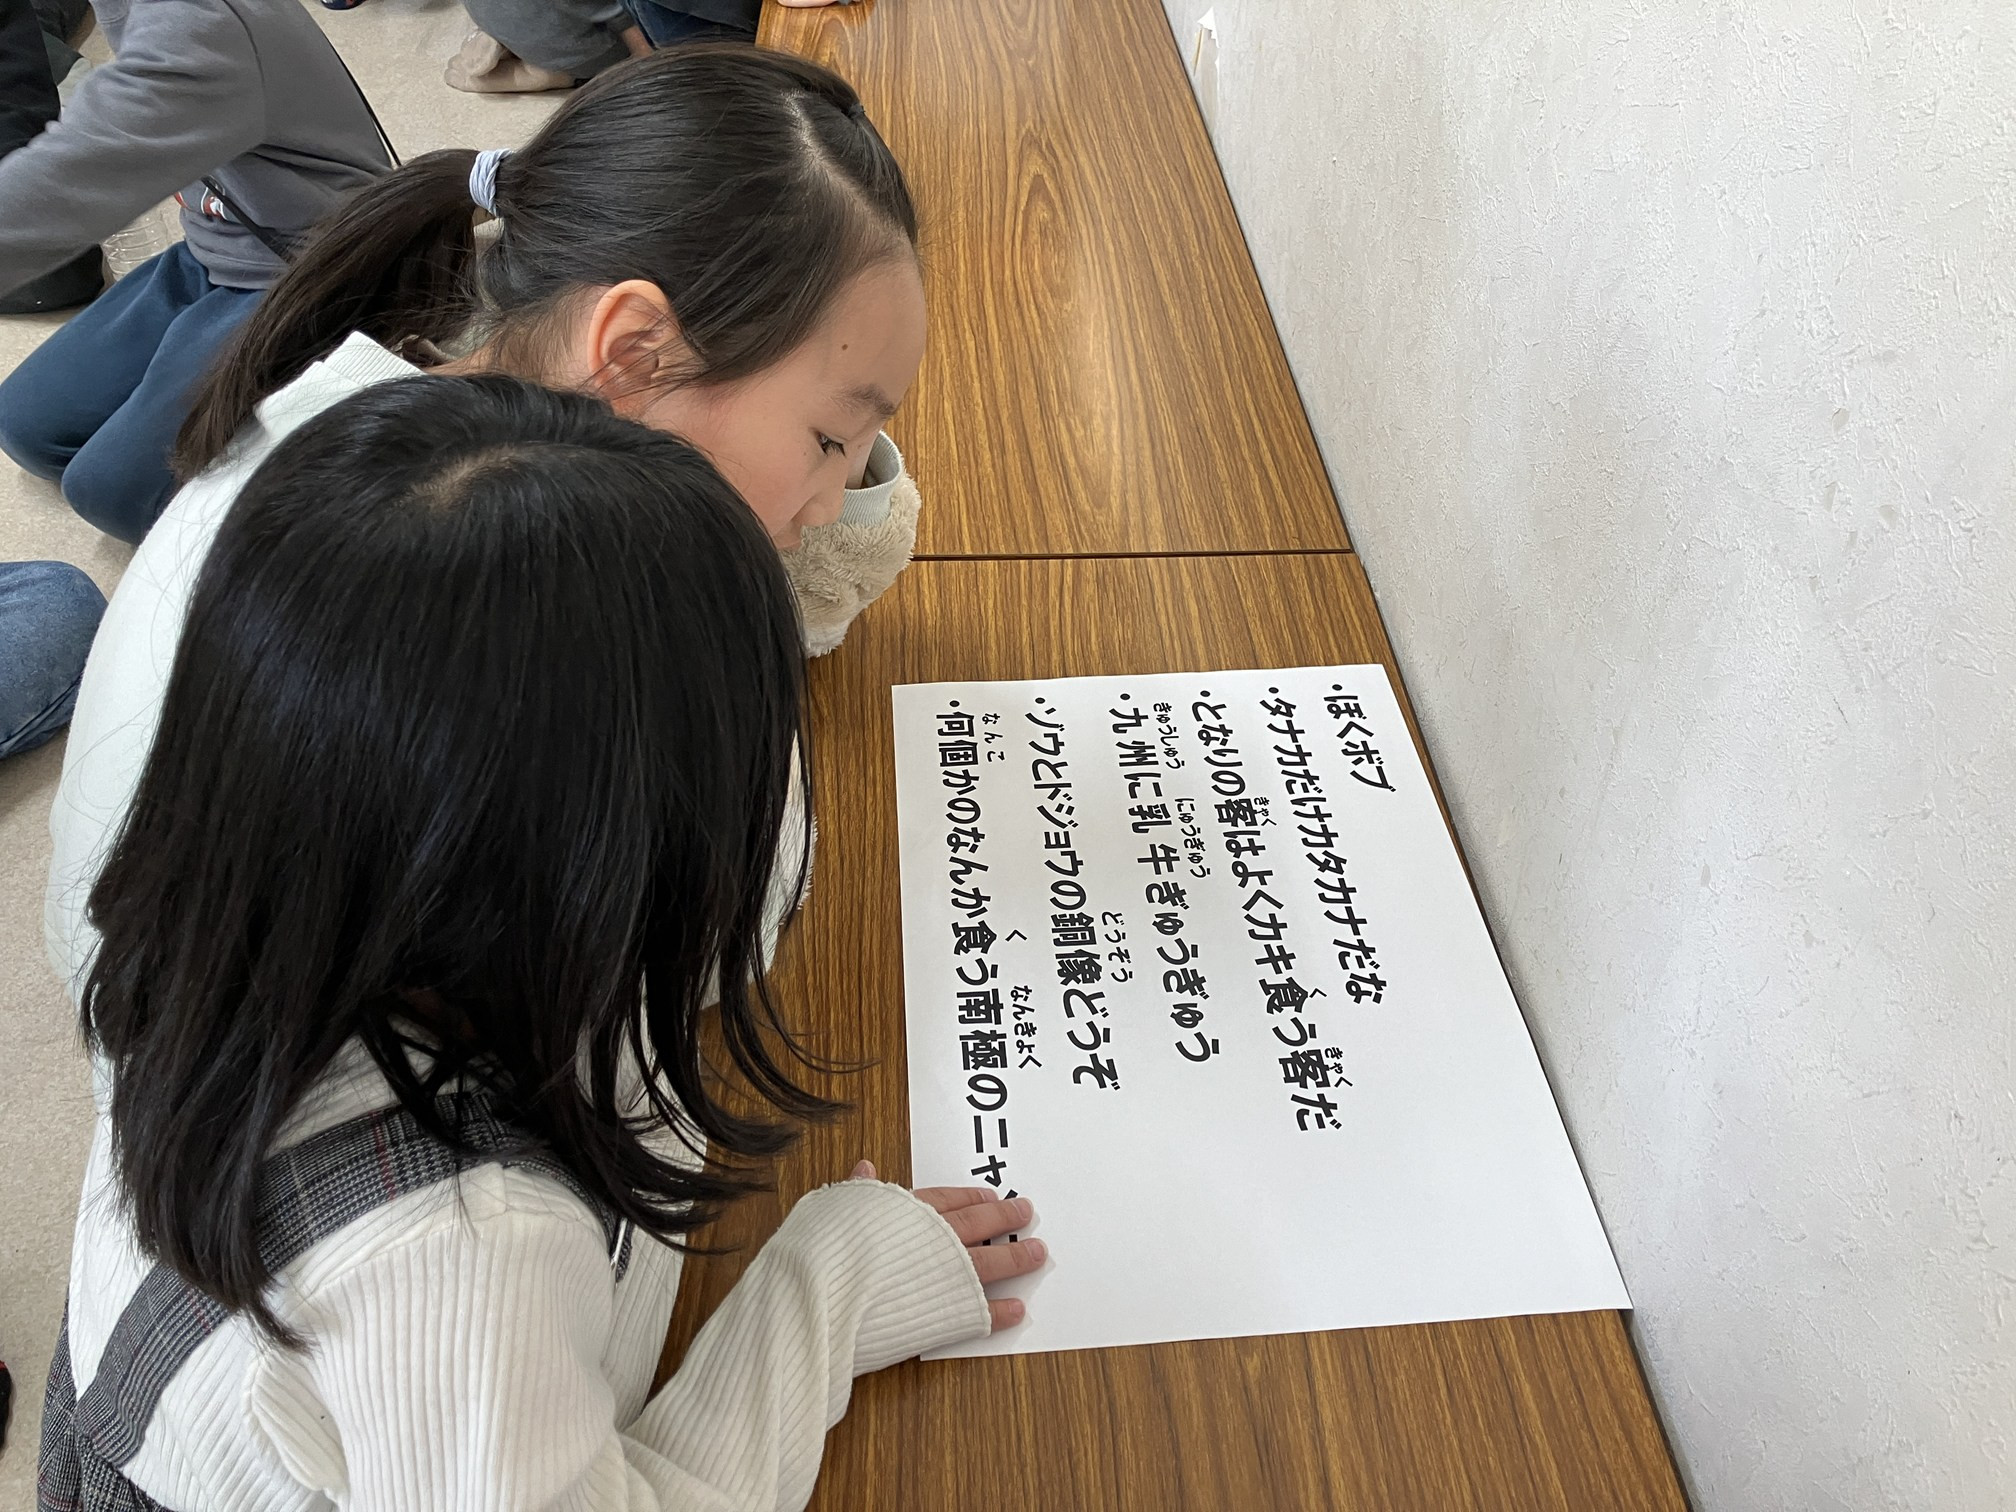 ・ぼくボブ
・タナカだけカタカナだな
きゃく く きゃく
・となりの客はよくカキ食う客だ
きゅうしゅう にゅうぎゅう
・九州に乳牛ぎゅうぎゅう
どうぞう
・ゾウとドジョウの銅像どうぞ
なんこ く なんきょく
・何個かのなんか食う南極のニャ